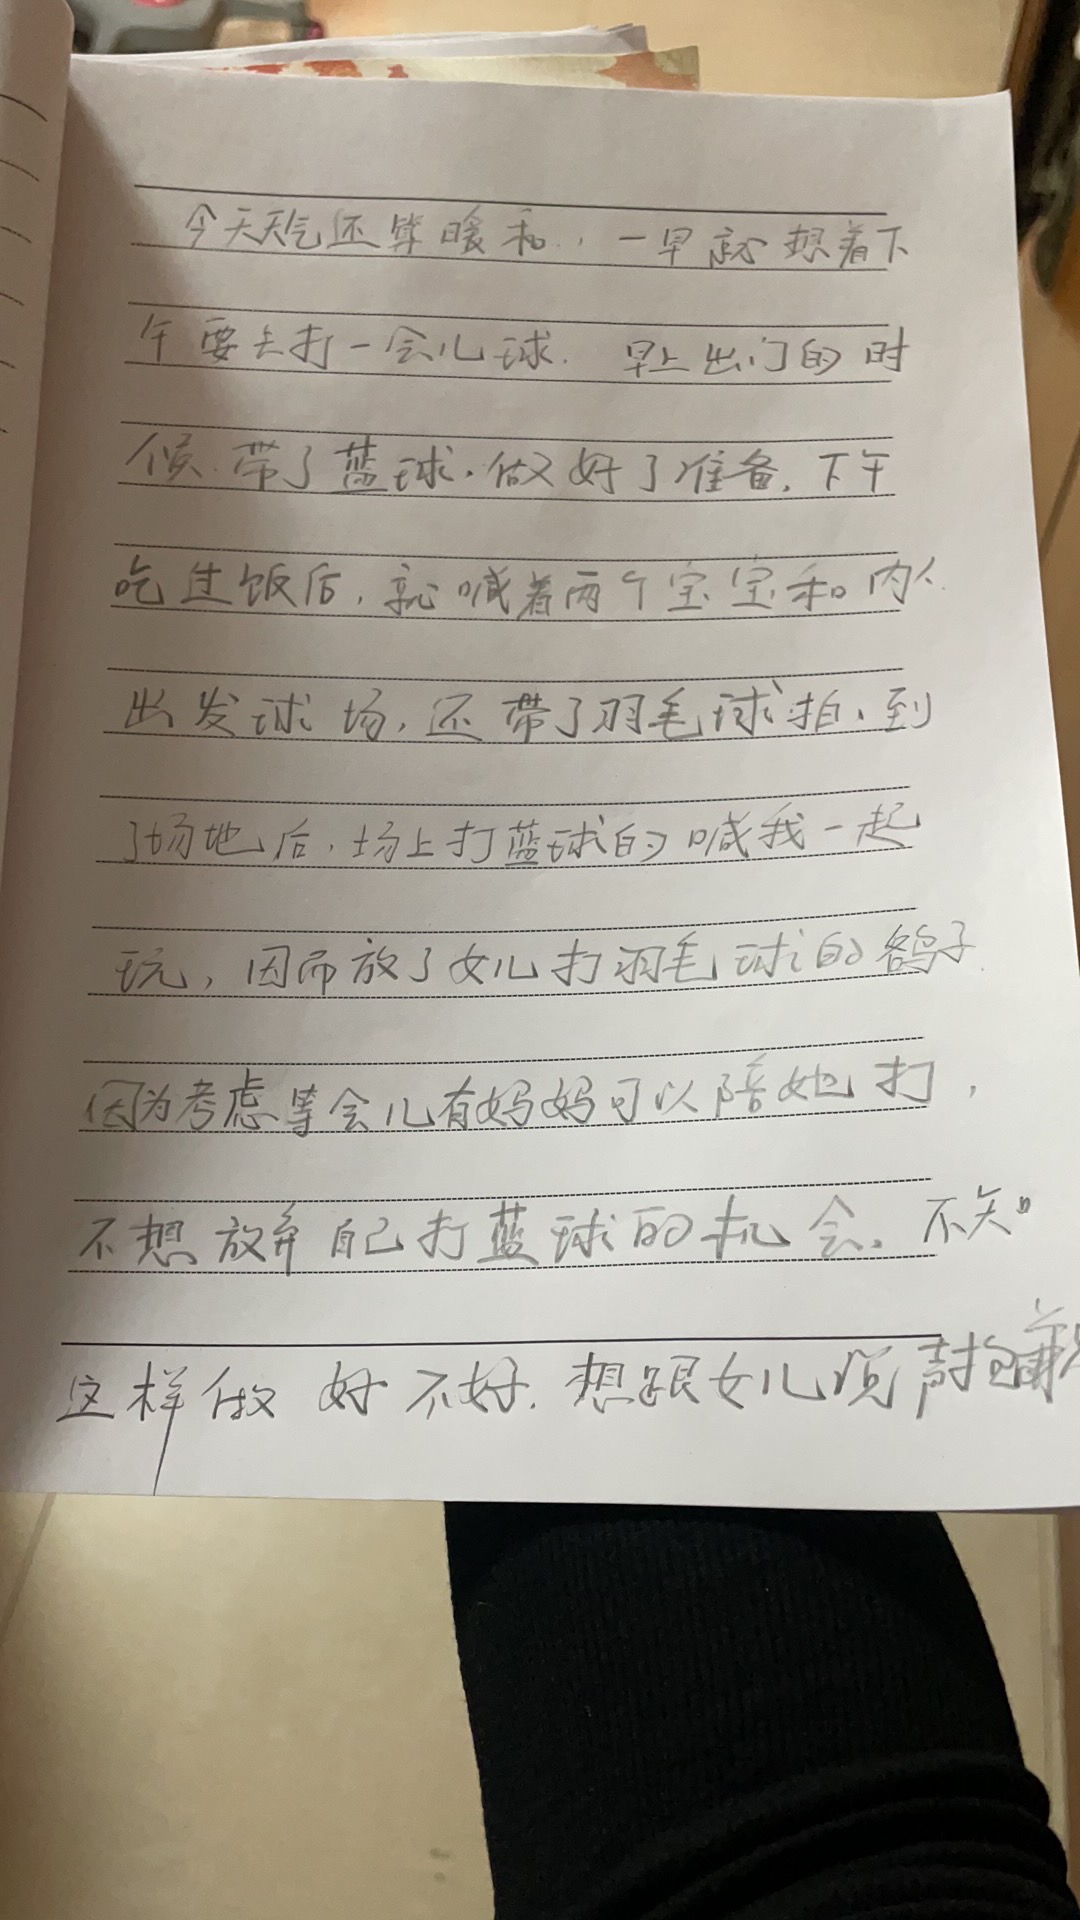 今天天气还算暖和，一早就想着下
午要去打一会儿球. 早上出门的时
候.带了蓝球.做好了准备.下午
吃过饭后,就喊着两个宝宝和内人
出发球场,还带了羽毛球拍、到
了场地后,场上打蓝球的喊我一起
玩,因而放了女儿打羽毛球的鸽子
因为考虑等会儿有妈妈可以陪她打,
不想放弃自己打蓝球的机会。不知
这样做好不好.想跟女儿说声抱歉